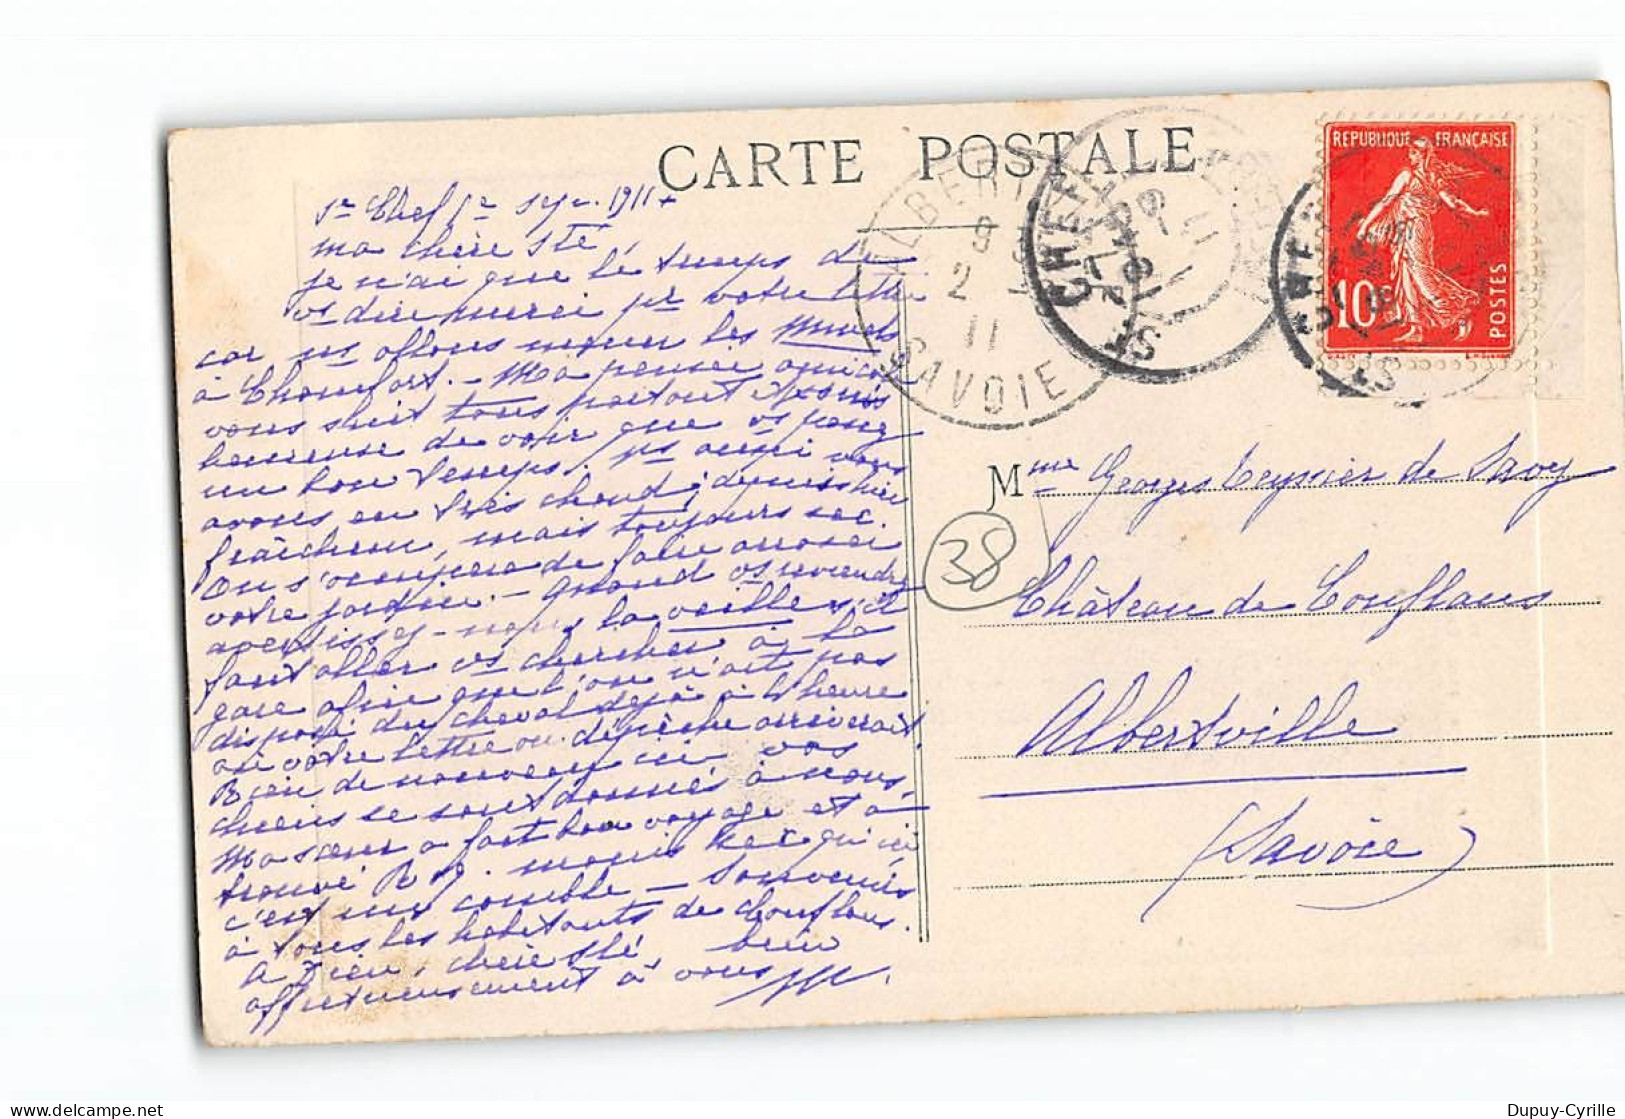 CARTE POSTALE
St Chef 1r sept. 1911 +
ma chère Sté
je n'ai que le temps de
vs dire merci pr votre lettre
car ns allons mener les
à Chamfort. — Ma pensée amicale
vous suit tous partout et je suis
heureuse de voir que vs
un bon temps. ns aussi nous
avons eu très chaud; depuis hier
fraîcheur, mais toujours sec.
On s'occupera de faire arroser
votre jardin. — Quand vs reviendrez
avertissez-nous la veille s'il
faut aller vs chercher à la
gare afin que l'on n'ait pas
disposé du cheval déjà à l'heure
où votre lettre ou dépêche arriverait.
Rien de nouveau ici vos
chiens se sont donnés à nous.
Ma sœur a fait bon voyage et a
trouvé R. moins sec qu'ici
c'est un comble — Souvenirs
à tous les habitants de Conflans.
A Dieu, chère Sté bien
affectueusement à vous
REPUBLIQUE FRANÇAISE
10c
POSTES
ALBERTVILLE
9
2
11
SAVOIE
ST CHEF
ISERE
ST CHEF
Mme Georges Teyssier de Savy
38
Château de Conflans
Albertville
(Savoie)
Dupuy-Cyrille